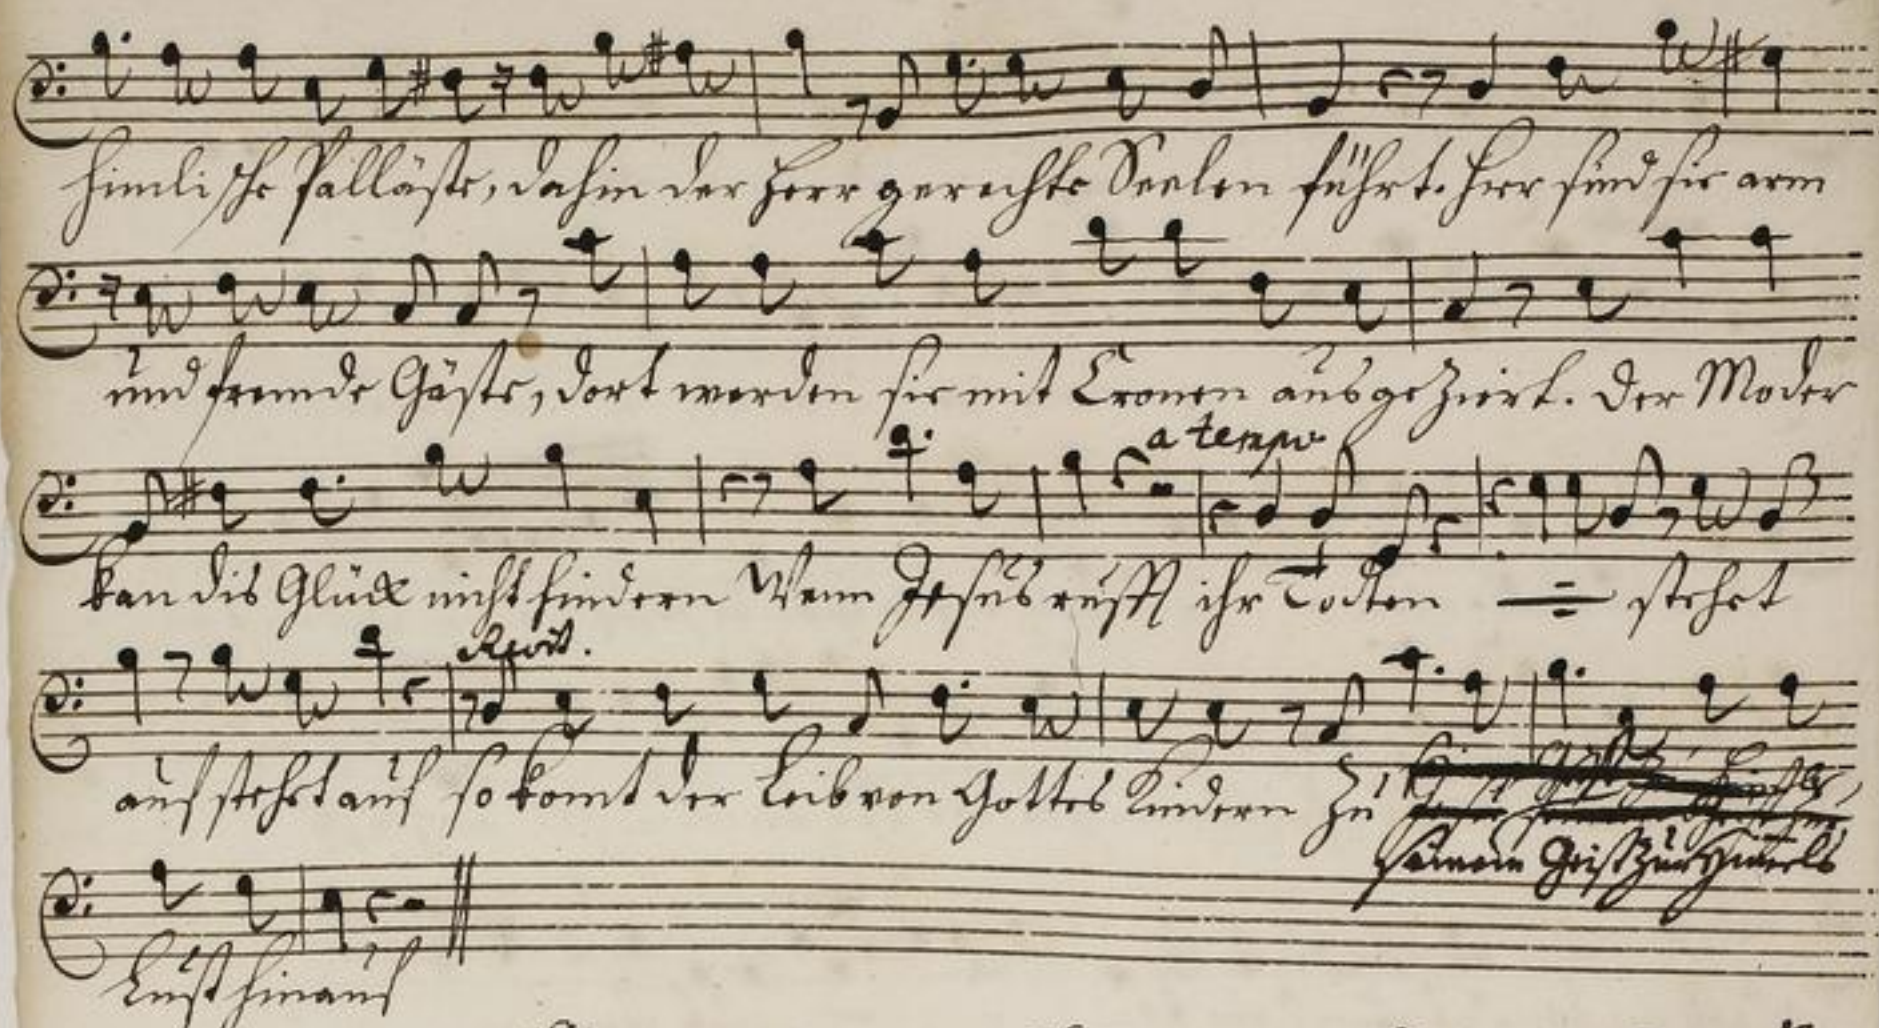 himlische Palläste, dahin der Herr gerechte Seelen führt. hier sind sie arm
und fremde Gäste, dort werden sie mit Cronen ausgeziert. Der Moder
a tempo
kan dis Glück nicht hindern Wenn Jesus rufft ihr Todten stehet
Recit.
auf stehet auf so komt der Leib von Gottes Kindern zu
seinem Geist zur Himels
Lust hinauf